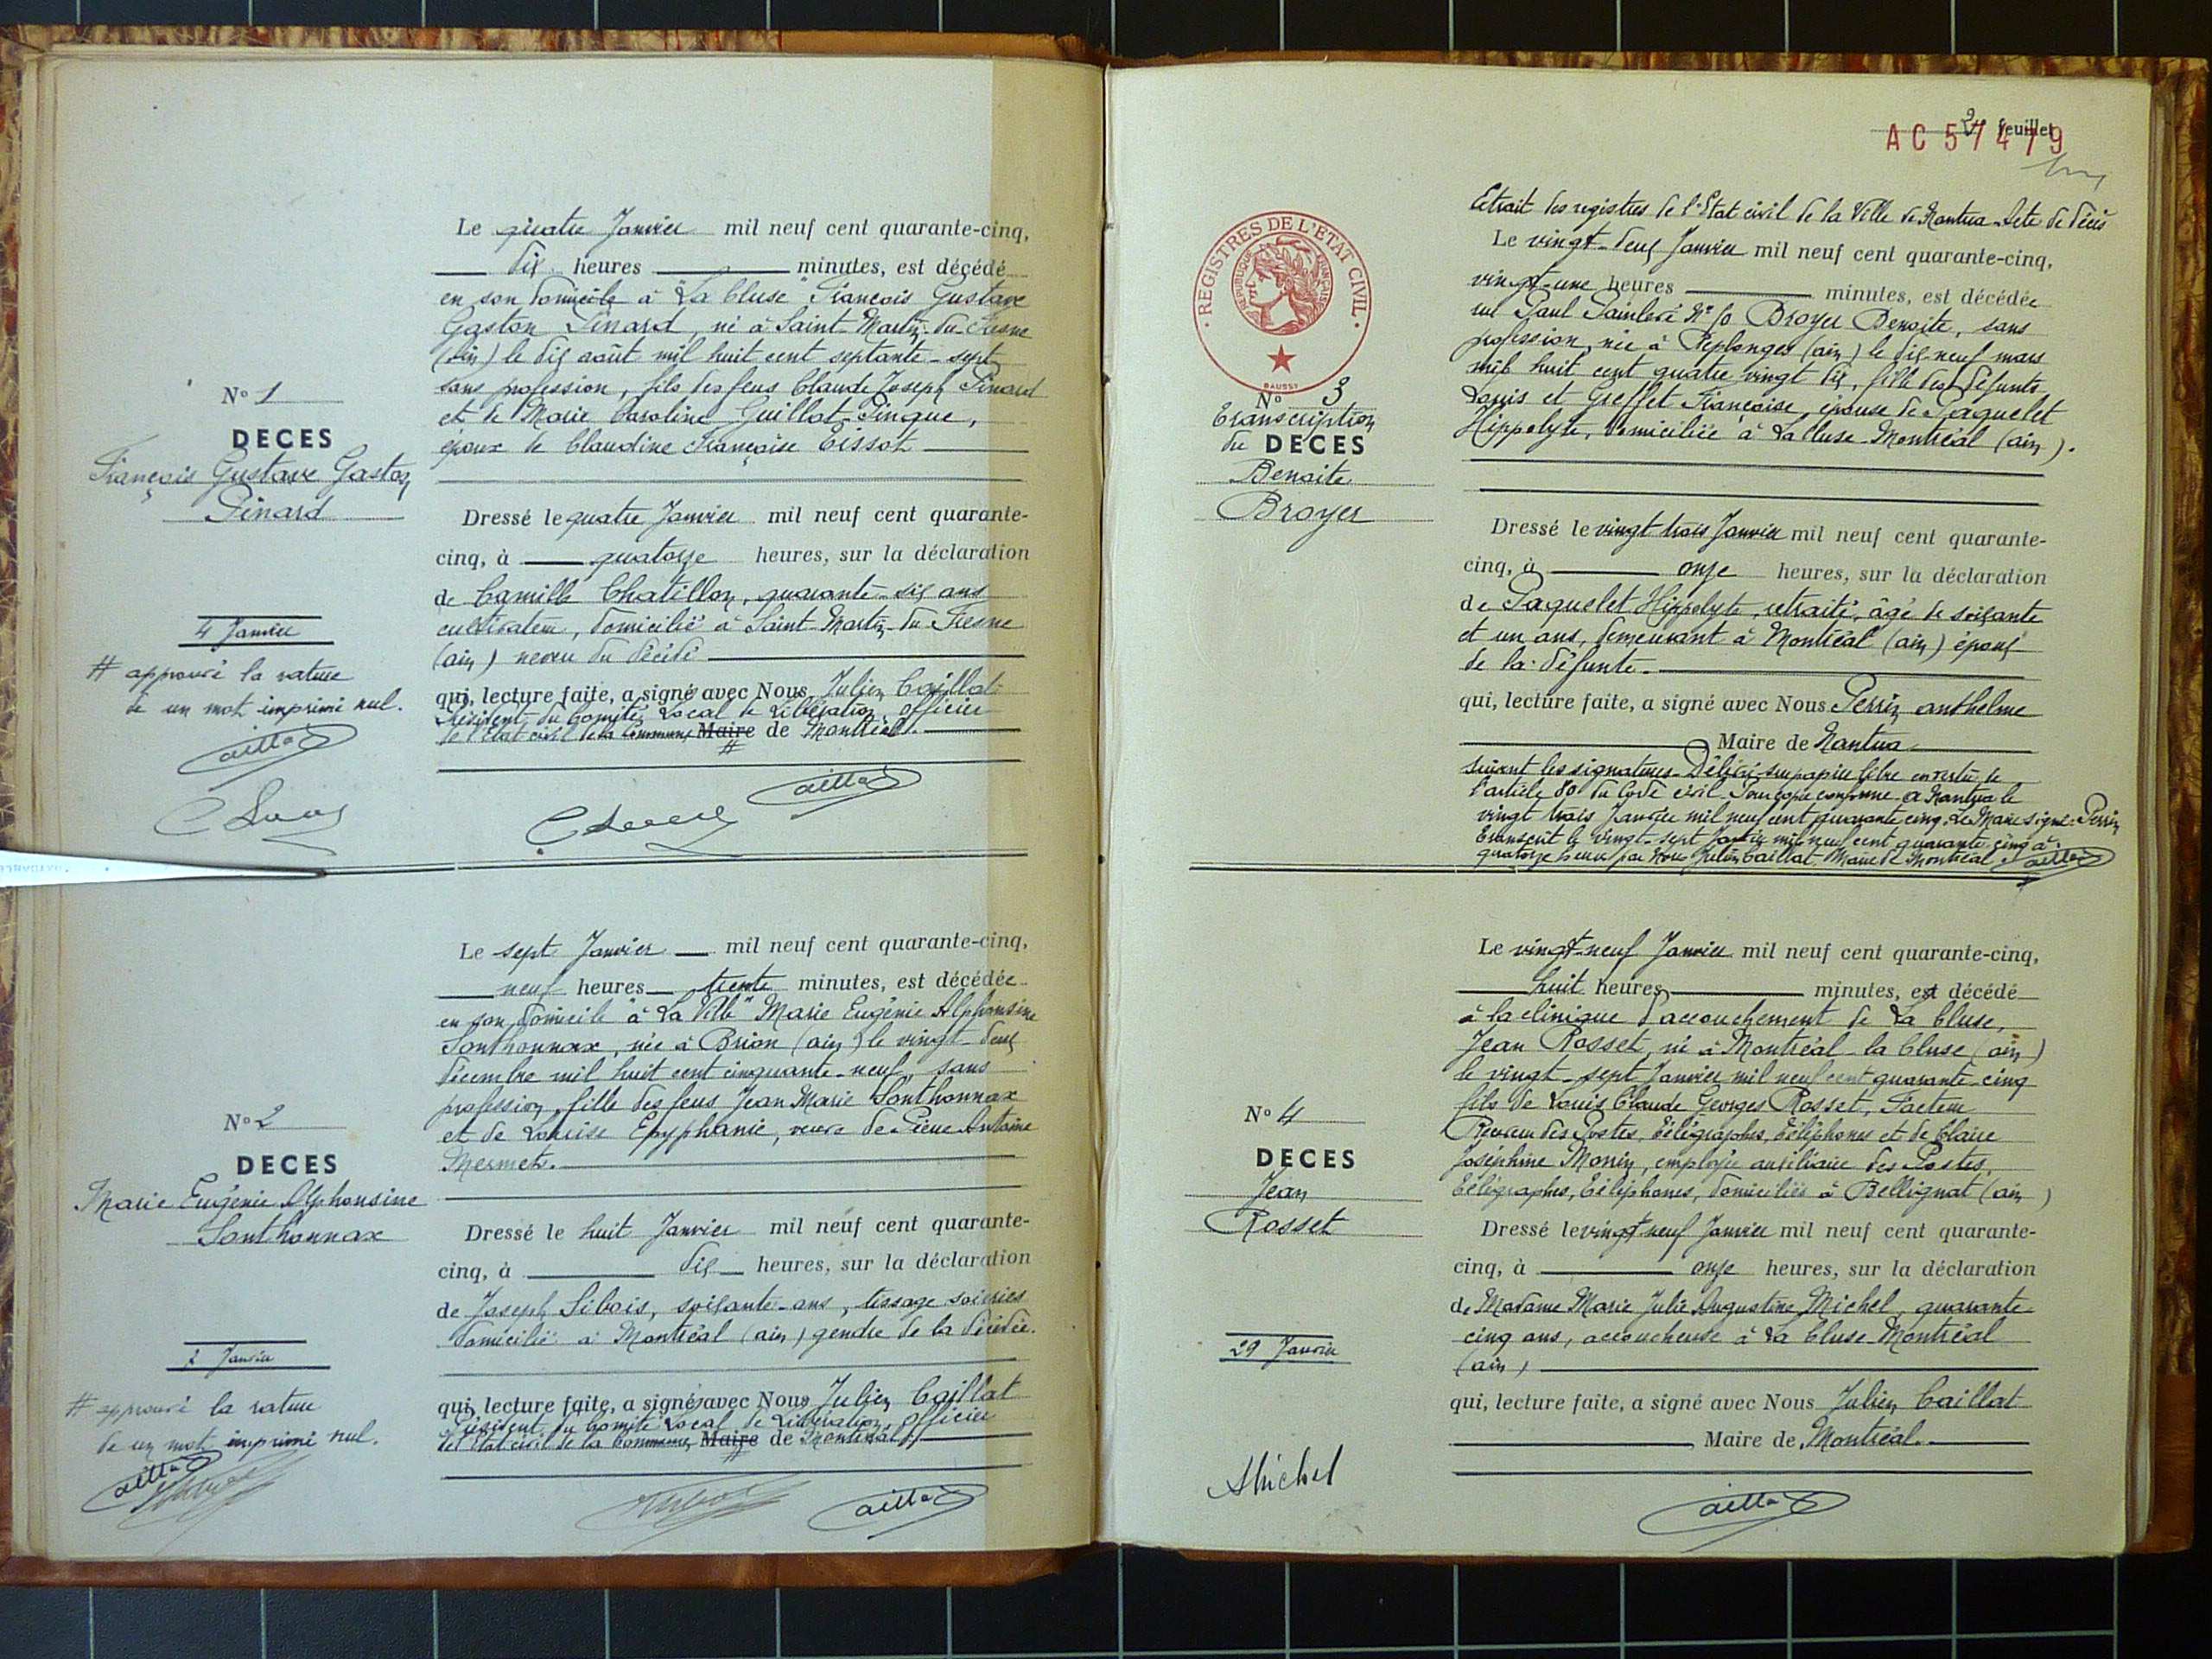 Le quatre Janvier mil neuf cent quarante-cinq,
dix heures minutes, est décédé
en son domicile à "La Cluse" François Gustave
Gaston Pinard, né à Saint-Martin-du-Fresne
(Ain) le dix août mil huit cent septante-sept
sans profession, fils des feus Claude Joseph Pinard
et de Marie Caroline Guillot-Pingue,
époux de Claudine Françoise Tissot
Nº 1
DECES
François Gustave Gaston
Pinard
Dressé le quatre Janvier mil neuf cent quarante-
cinq, à quatorze heures, sur la déclaration
de Camille Chatillon, quarante-six ans
cultivateur, domicilié à Saint-Martin-du-Fresne
(ain) neveu du décédé
qui, lecture faite, a signé avec Nous, Julien Caillat
Président du Comité Local de Libération, officier
de l'état civil de la Commune, Maire de Montréal.
#
4 Janvier
# approuvé la rature
de un mot imprimé nul.
Le sept Janvier mil neuf cent quarante-cinq,
neuf heures trente minutes, est décédée
en son domicile à "La Ville" Marie Eugénie Alphonsine
Sonthonnax, née à Brion (ain) le vingt-deux
décembre mil huit cent cinquante-neuf, sans
profession, fille des feus Jean Marie Sonthonnax
et de Louise Epyphanie, veuve de Pierre Antoine
Mermet.
Nº 2
DECES
Marie Eugénie Alphonsine
Sonthonnax
Dressé le huit Janvier mil neuf cent quarante-
cinq, à dix heures, sur la déclaration
de Joseph Sibois, soixante-ans, tissage soieries
domicilié à Montréal (ain) gendre de la décédée.
qui, lecture faite, a signé avec Nous Julien Caillat
Président du Comité Local de Libération, officier
de l'état civil de la Commune, Maire de Montréal.
#
Janvier
# approuvé la rature
de un mot imprimé nul.
2e feuillet
AC 57479
REGISTRES DE L'ETAT CIVIL
REPUBLIQUE FRANÇAISE
BAUSSY
Extrait des registres de l'Etat civil de la Ville de Nantua - Acte de décès
Le vingt-deux Janvier mil neuf cent quarante-cinq,
vingt-une heures minutes, est décédée
rue Paul Painlevé Nº 50 Broyer Benoite, sans
profession, née à Replonges (ain) le dix neuf mars
mil huit cent quatre vingt dix, fille des défunts
Louis et Greffet Françoise, épouse de Paquelet
Hippolyte, domiciliée à La Cluse-Montréal (ain).
Nº 3
Transcription
de DECES
Benoite
Broyer
Dressé le vingt trois Janvier mil neuf cent quarante-
cinq, à onze heures, sur la déclaration
de Paquelet Hippolyte, retraité, âgé de soixante
et un ans, demeurant à Montréal (ain) époux
de la défunte.
qui, lecture faite, a signé avec Nous Perrin anthelme
Maire de Nantua
suivent les signatures - Délivré sur papier libre en vertu de
l'article 80 du Code civil - Pour copie conforme - A Nantua le
vingt trois Janvier mil neuf cent quarante cinq. Le Maire signé: Perrin
Transcrit le vingt-sept Janvier mil neuf cent quarante cinq à
quatorze heures par Nous Julien Caillat Maire de Montréal.
Le vingt-neuf Janvier mil neuf cent quarante-cinq,
huit heures, minutes, est décédé
à la clinique d'accouchement de La Cluse,
Jean Rosset, né à Montréal-la Cluse (ain)
le vingt-sept Janvier mil neuf cent quarante-cinq
fils de Louis Claude Georges Rosset, Facteur
Receveur des Postes, Télégraphes, Téléphones et de Claire
Joséphine Monin, employée auxiliaire des Postes,
Télégraphes, Téléphones, domiciliés à Bellignat (ain)
Nº 4
DECES
Jean
Rosset
Dressé le vingt neuf Janvier mil neuf cent quarante-
cinq, à onze heures, sur la déclaration
de Madame Marie Julie Augustine Michel, quarante
cinq ans, accoucheuse à La Cluse-Montréal
(ain)
29 Janvier
qui, lecture faite, a signé avec Nous Julien Caillat
Maire de Montréal.
Michel